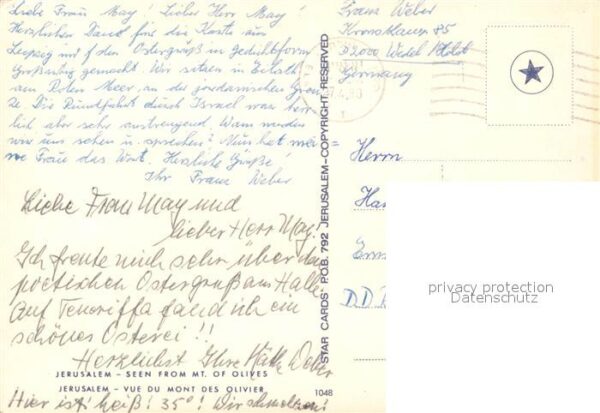 Liebe Frau May! Lieber Herr May!
Herzlichen Dank für die Karte aus
Leipzig u. f. den Ostergruß in Gedichtform
Großartig gemacht. Wir sitzen in Eilath
am Roten Meer an der jordanischen Gren
ze Die Rundfahrt durch Israel war herr
lich aber sehr anstrengend. Wann werden
wir uns sehen u. sprechen? Nun hat mei
ne Frau das Wort. Herzliche Grüße!
Ihr Franz Weber
Liebe Frau May und
lieber Herr May!
Ich freute mich sehr über den
poetischen Ostergruß aus Halle.
Auf Teneriffa fand ich ein
schönes Osterei!!
Herzlichst Ihre Käthe Weber
JERUSALEM – SEEN FROM MT. OF OLIVES
JERUSALEM – VUE DU MONT DES OLIVIER
1048
Hier ist heiß! 35°! Wir schmelzen!
STAR CARDS· P.O.B. 792 JERUSALEM—COPYRIGHT RESERVED
Franz Weber
85
D 2000 Wedel Holst
Germany
Herrn
Han
D D
privacy protection
Datenschutz